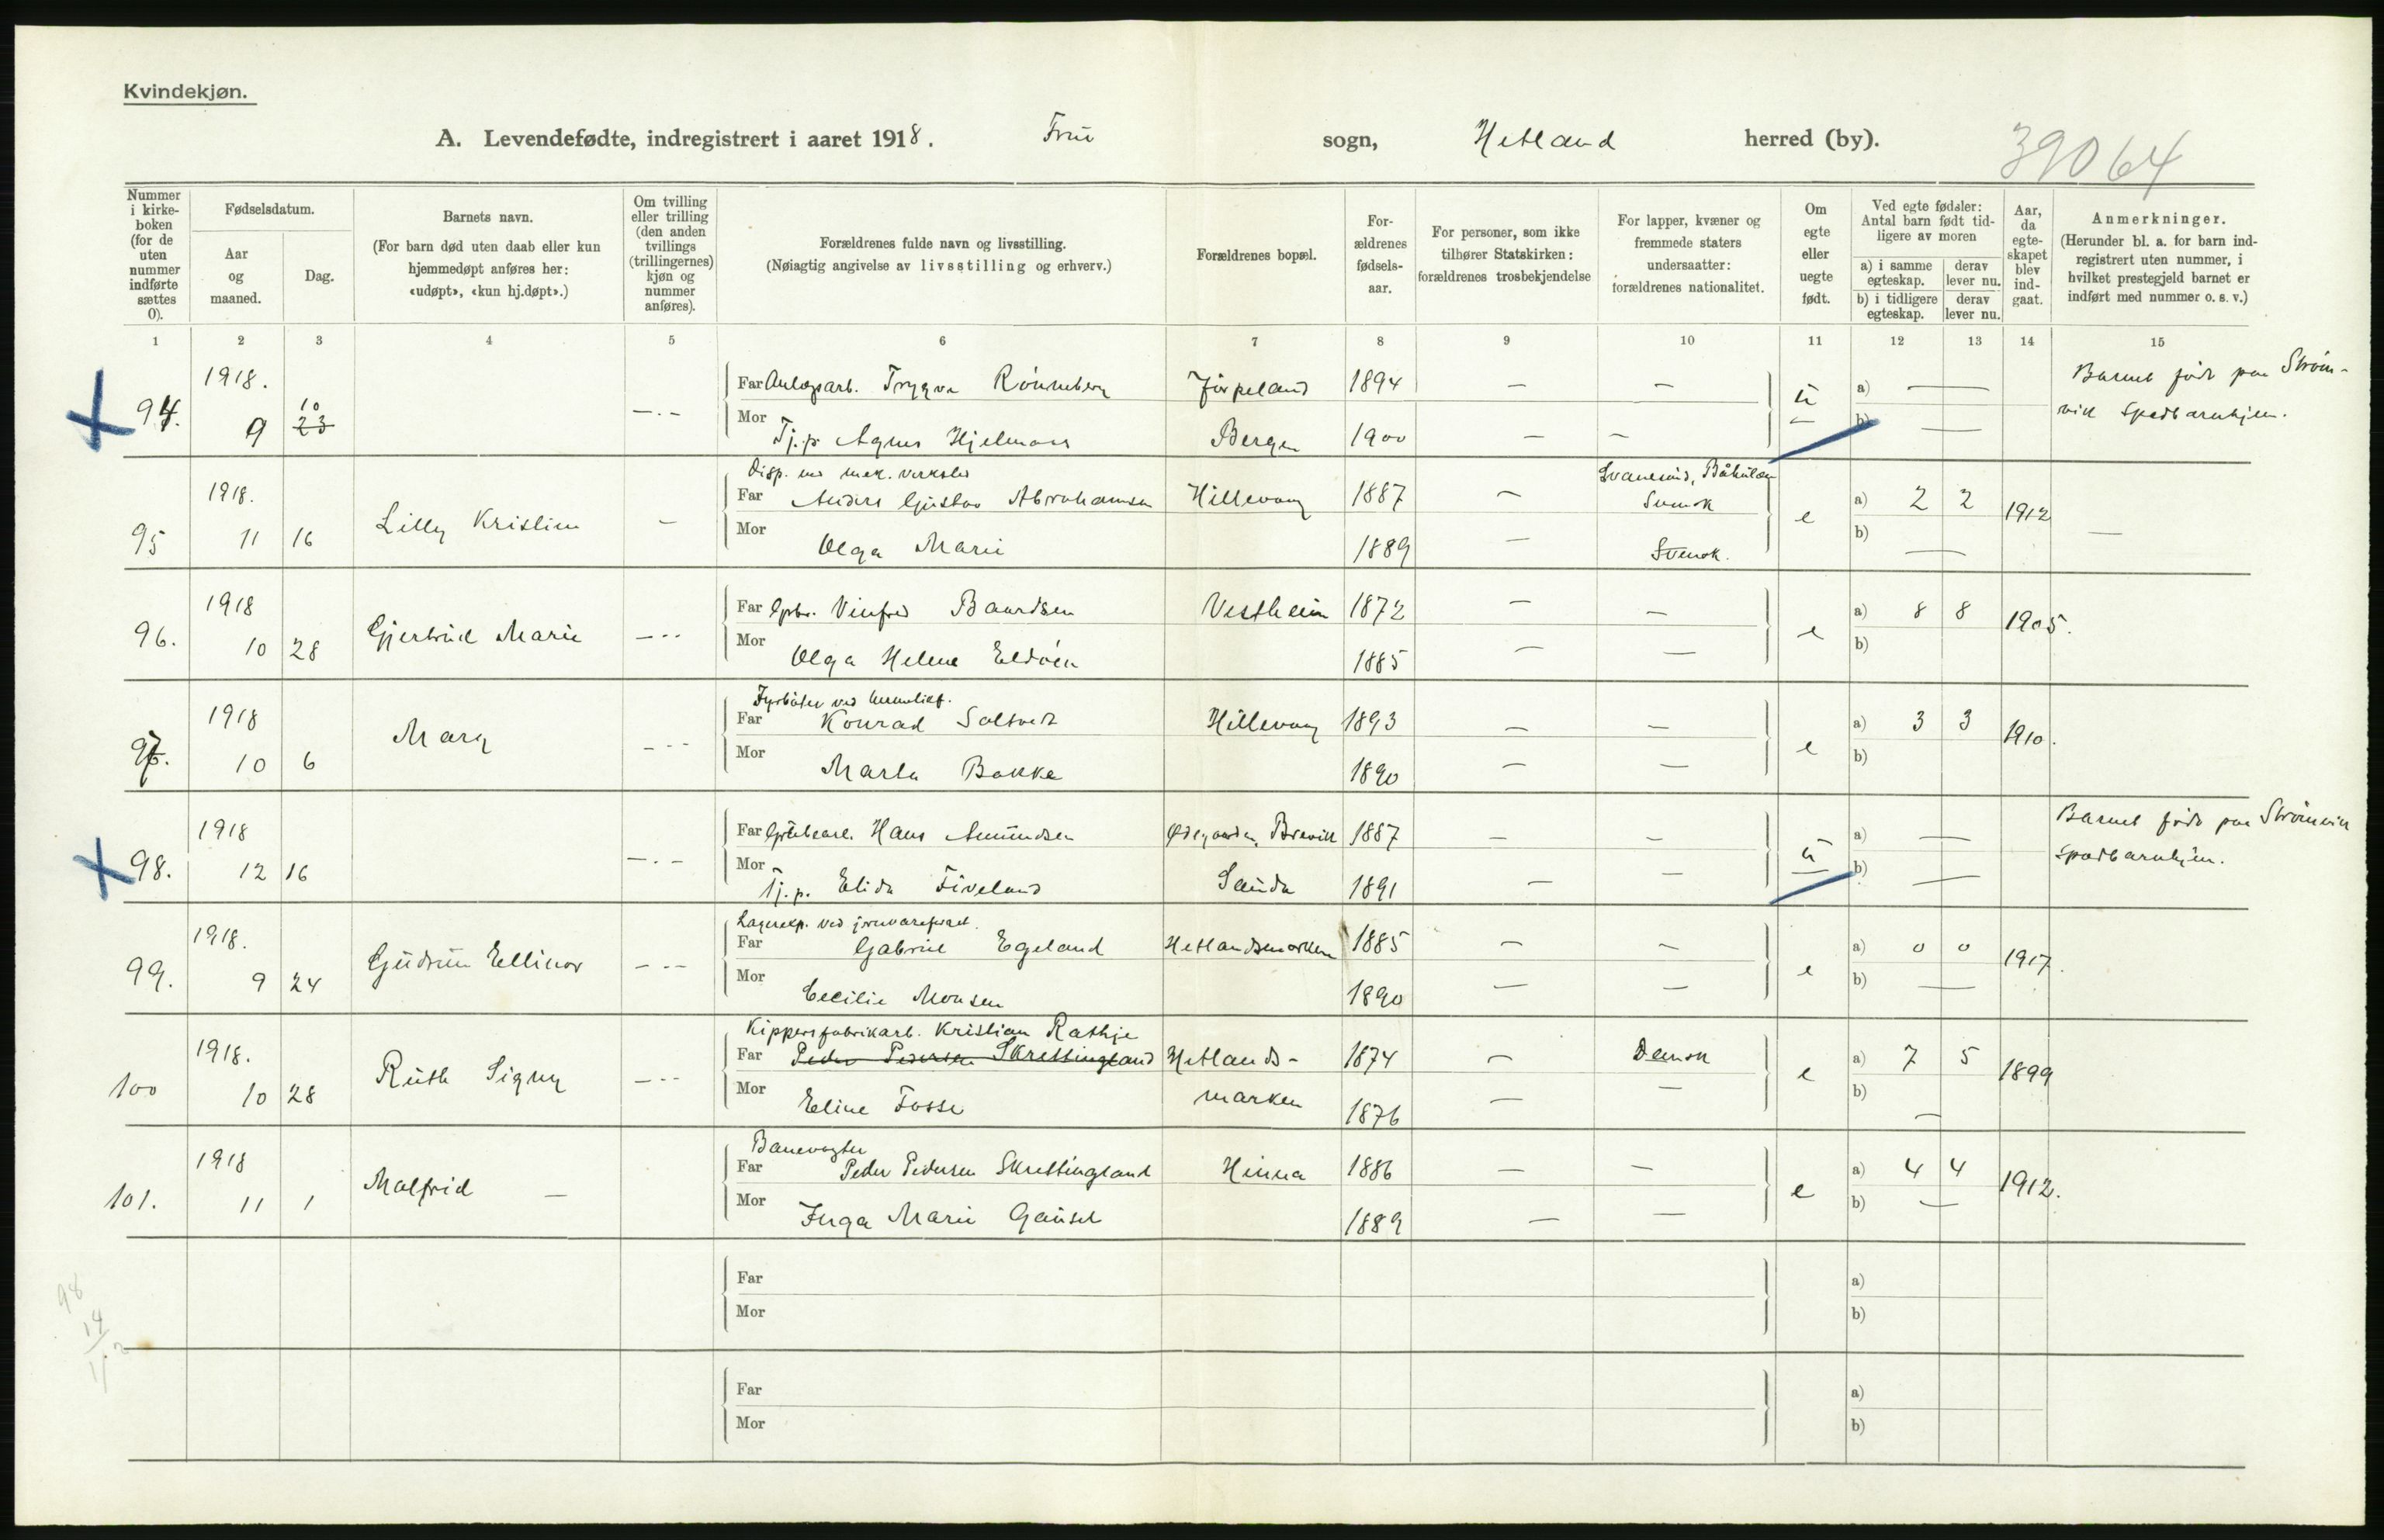 Kvindekjøn.
A. Levendefødte, indregistrert i aaret 1918. Frue sogn, Hetland herred (by). 39064
Nummer i kirkeboken (for de uten nummer indførte sættes 0).
Fødselsdatum.
Aar og maaned.
Dag.
Barnets navn.
(For barn død uten daab eller kun hjemmedøpt anføres her: «udøpt», «kun hj.døpt».)
Om tvilling eller trilling (den anden tvillings (trillingernes) kjøn og nummer anføres).
Forældrenes fulde navn og livsstilling.
(Nøiagtig angivelse av livsstilling og erhverv.)
Forældrenes bopæl.
Forældrenes fødselsaar.
For personer, som ikke tilhører Statskirken: forældrenes trosbekjendelse
For lapper, kvæner og fremmede staters undersaatter: forældrenes nationalitet.
Om egte eller uegte født.
Ved egte fødsler: Antal barn født tidligere av moren
a) i samme egteskap. derav lever nu.
b) i tidligere egteskap. derav lever nu.
Aar, da egteskapet blev indgaat.
Anmerkninger.
(Herunder bl. a. for barn indregistrert uten nummer, i hvilket prestegjeld barnet er indført med nummer o. s. v.)
1 2 3 4 5 6 7 8 9 10 11 12 13 14 15
1918. Far Anlægsarb. Trygve Rönneberg Jörpeland 1894 — — ü a) — Barnet født paa Ström-
94. 9 10 23 —.- Mor Tj.p. Agnes Hjelmaas Bergen 1900 — — b) — vik Spedbarnhjem.
Disp. ved mek. verksted Svanesund, Båhuslän
1918. Far Anders Gustav Abrahamsen Hillevaag 1887 — Svensk a) 2 2 1912
95 11 16 Lilly Kristine — Mor Olga Marie 1889 — Svensk. e b) — —
1918 Far Gbr. Vinfred Baardsen Vestheim 1872 — — a) 8 8 1905.
96. 10 28 Gjertrud Marie — Mor Olga Helene Eldöen 1885 — — e b)
Fyrböter ved
1918 Far Konrad Soltvedt Hillevaag 1893 — — a) 3 3 1910.
97. 10 6 Mary — Mor Marta Bakke 1890 — — e b)
1918 Far Grubearb. Hans Amundsen Ødegaarden, Brevik 1887 — — ü a) — Barnet født paa Strömvik
98. 12 16 —.- Mor Tj.p. Elida Fiveland Sauda 1891 — — b) — Spedbarnhjem.
Lagerexp. ved jernvareforret.
1918. Far Gabriel Egeland Hetlandsmarken 1885 — — a) 0 0 1917.
99. 9 24 Gudrun Ellinor — Mor Cecilie Monsen 1890 — — e b) —
Kippersfabrikarb. Kristian Rathje
1918. Far Peder Pedersen Skrettingland Hetlands- 1874 — Dansk a) 7 5 1899
100 10 28 Ruth Signy — Mor Eline Fosse marken 1876 — — e b) —
Banevogter
1918 Far Peder Pedersen Skrettingland Hinna 1886 — — a) 4 4 1912.
101. 11 1 Malfrid — Mor Inga Marie Gausel 1889 — — e b) —
Far a)
Mor b)
98
14
Far a)
Mor b)